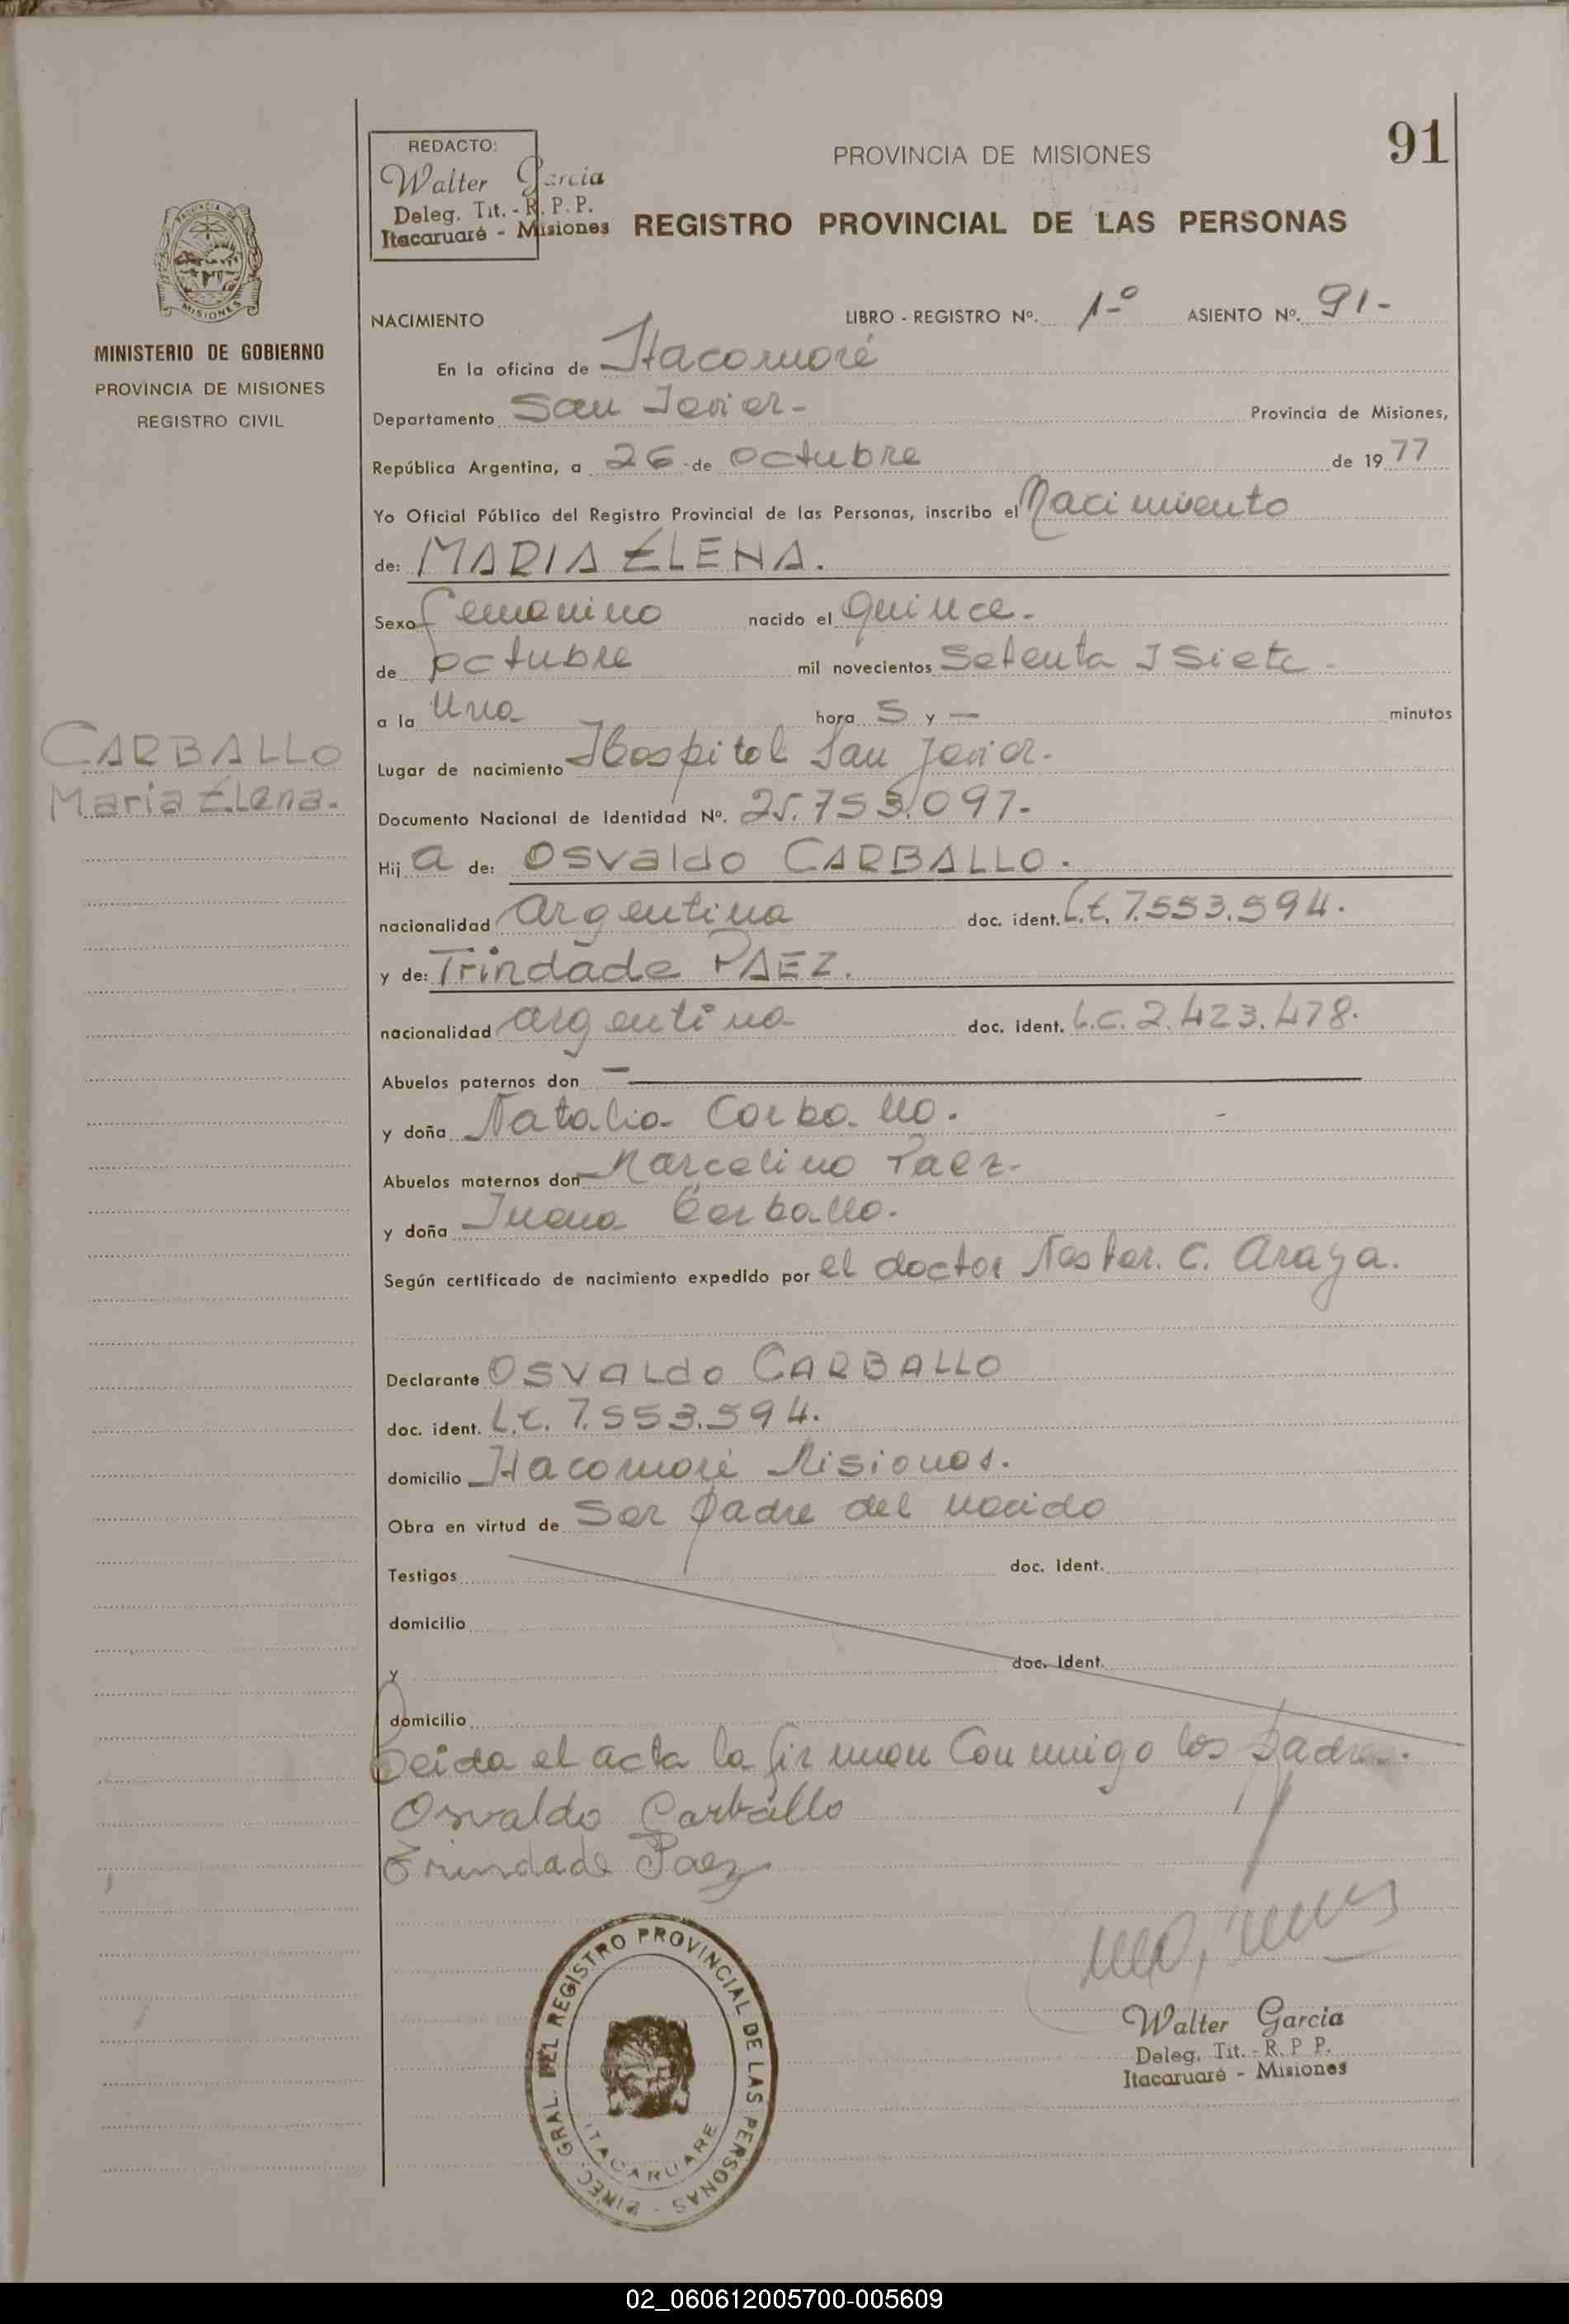 91
REDACTO:
Walter Garcia
Deleg. Tit. - R. P. P.
Itacaruaré - Misiones
PROVINCIA DE MISIONES
REGISTRO PROVINCIAL DE LAS PERSONAS
PROVINCIA DE
MISIONES
MINISTERIO DE GOBIERNO
PROVINCIA DE MISIONES
REGISTRO CIVIL
NACIMIENTO LIBRO - REGISTRO Nº. 1-º ASIENTO Nº. 91-
En la oficina de Itacaruaré
Departamento San Javier- Provincia de Misiones,
República Argentina, a 26 de octubre de 1977
Yo Oficial Público del Registro Provincial de las Personas, inscribo el Nacimiento
de: MARIA ELENA.
Sexo femenino nacido el quince-
de octubre mil novecientos Setenta y Siete-
a la Una hora S y — minutos
CARBALLO
Maria Elena.-
Lugar de nacimiento Hospital San Javier-
Documento Nacional de Identidad Nº. 25.753.097-
Hij a de: Osvaldo CARBALLO.
nacionalidad argentina doc. ident. L.E. 7.553.594.
y de: Trindade PAEZ.
nacionalidad argentina doc. ident. L.C. 2.423.478.
Abuelos paternos don —
y doña Natalia Carballo.
Abuelos maternos don Marcelino Paez-
y doña Juana Carballo.
Según certificado de nacimiento expedido por el doctor Nestor. C. Araya.
Declarante OSVALdo CARBALLO
doc. ident. L.E. 7.553.594.
domicilio Itacaruaré Misiones.
Obra en virtud de Ser padre del nacido
Testigos doc. Ident.
domicilio
y doc. Ident.
domicilio
Leida el acta la firman Conmigo los padres.
Osvaldo Carballo
Trindade Paez
DIREC. GRAL. DEL REGISTRO PROVINCIAL DE LAS PERSONAS -
ITACARUARE
Walter Garcia
Deleg. Tit. - R. P. P.
Itacaruaré - Misiones
02_060612005700-005609